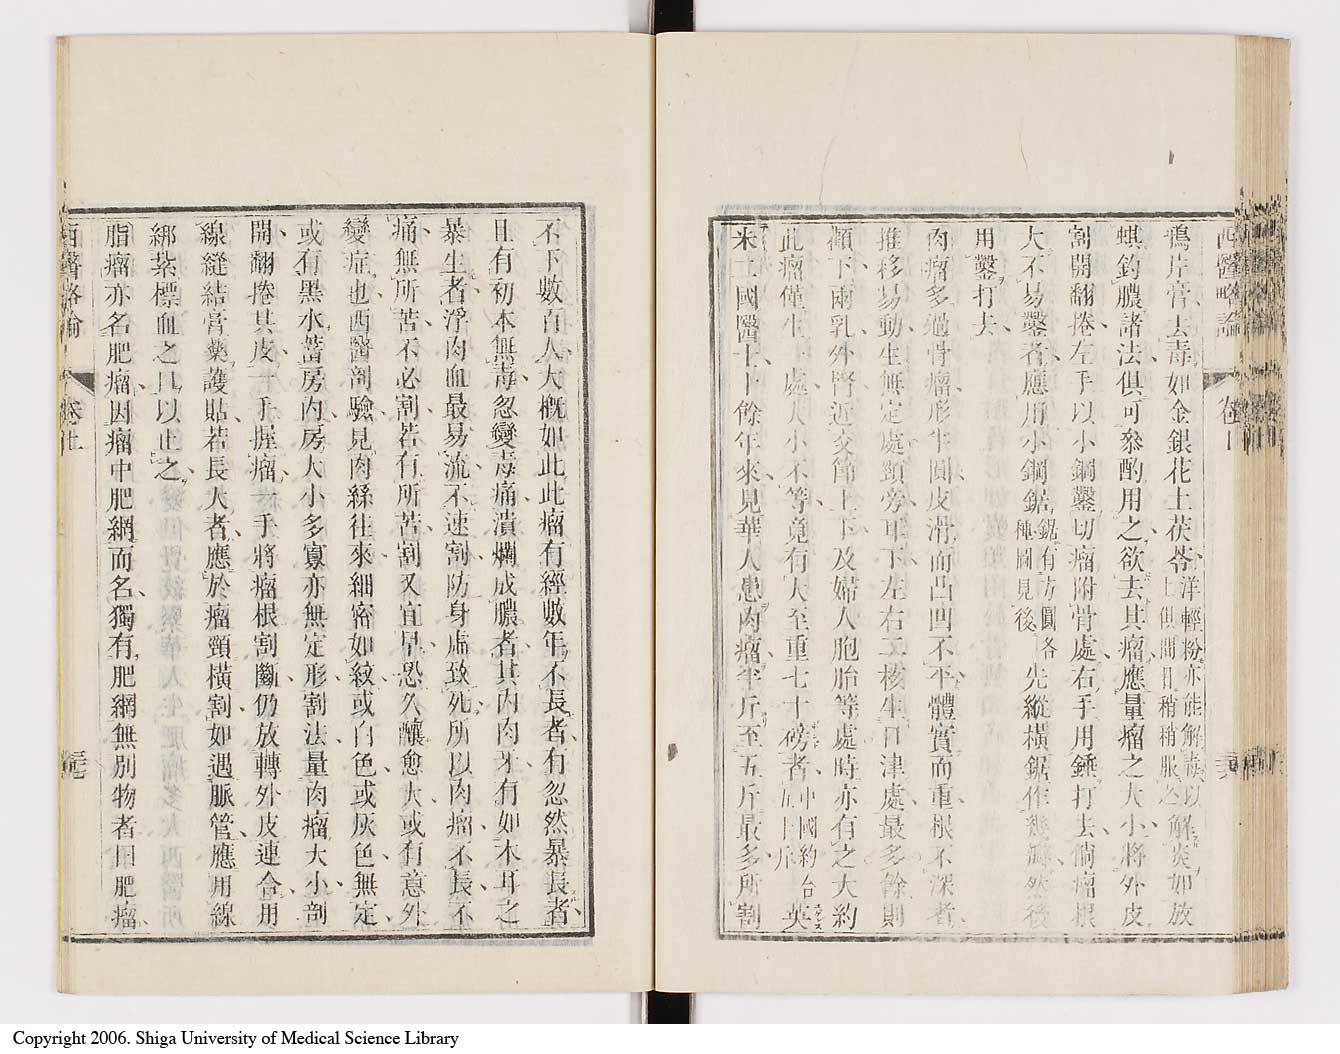 西醫略論
卷上
鴉片膏去毒如金銀花土茯苓洋輕粉亦能解毒以上俱間日稍稍服之解炎如放
蜞釣膿諸法俱可叅酌用之欲去其瘤應量瘤之大小將外皮
割開翻捲左手以小鋼鑿切瘤附骨處右手用錘打去倘瘤根
大不易鑿者應用小鋼鋸鋸有方圓各種圖見後先縱橫鋸作幾瓣然後
用鑿打去
肉瘤多過骨瘤形半圓皮滑而凸凹不平體實而重根不深者
推移易動生無定處頸旁耳下左右二核生口津處最多餘則
顴下兩乳外腎近交節上下及婦人胞胎等處時亦有之大約
此瘤僅生一處大小不等竟有大至重七十磅者中國約五十斤合英
米二國醫士十餘年來見華人患肉瘤半斤至五斤最多所割
不下數百人大概如此此瘤有經數年不長者有忽然暴長者
且有初本無毒忽變毒痛潰爛成膿者其內肉才有如木耳之
暴生者浮肉血最易流不速割防身虛致死所以肉瘤不長不
痛無所苦不必割若有所苦割又宜早恐久釀愈大或有意外
變症也西醫剖驗見肉絲往來細密如紋或白色或灰色無定
或有黑水蓄房內房大小多寡亦無定形割法量肉瘤大小剖
開翻捲其皮一手握瘤一手將瘤根割斷仍放轉外皮連合用
線縫結膏藥護貼若長大者應於瘤頸橫割如遇脈管應用線
綁紮標血之口以止之
脂瘤亦名肥瘤因瘤中肥網而名獨有肥網無別物者曰肥瘤
西醫略論